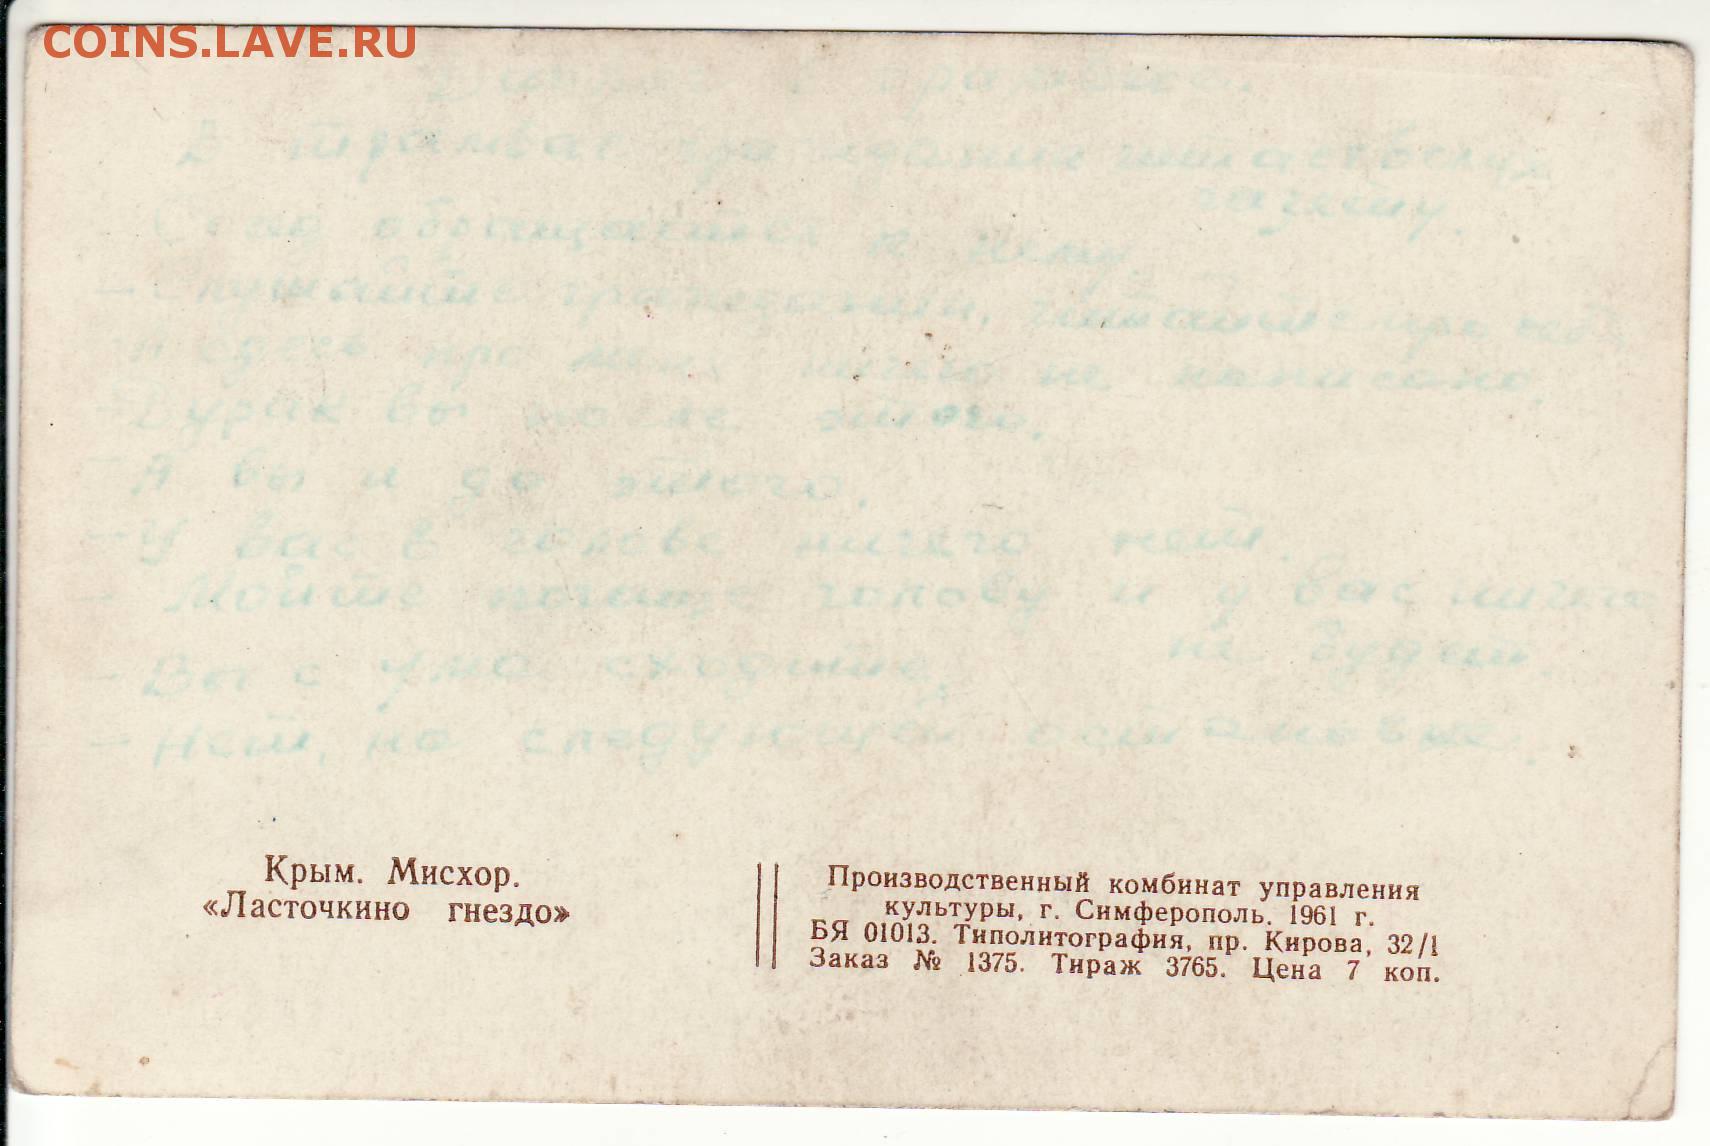 COINS.LAVE.RU
в трамвае.
В трамвае гражданин вслух
газету.
обращается к нему.
– Слушайте гражданин, читайте про себя.
– А здесь про меня ничего не написано.
– Дурак вы после этого.
– А вы и до этого.
– У вас в голове ничего нет.
– Мойте почаще голову и у вас ничего
не будет.
– Вы с ума сходите,
– Нет, на следующей остановке.
Крым. Мисхор.
«Ласточкино гнездо»
Производственный комбинат управления
культуры, г. Симферополь. 1961 г.
БЯ 01013. Типолитография, пр. Кирова, 32/1
Заказ № 1375. Тираж 3765. Цена 7 коп.